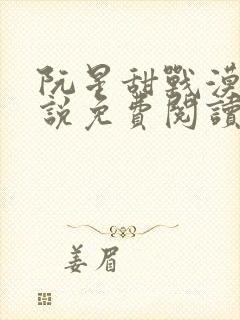 阮星甜戰漠
說免費閱讀
姜眉